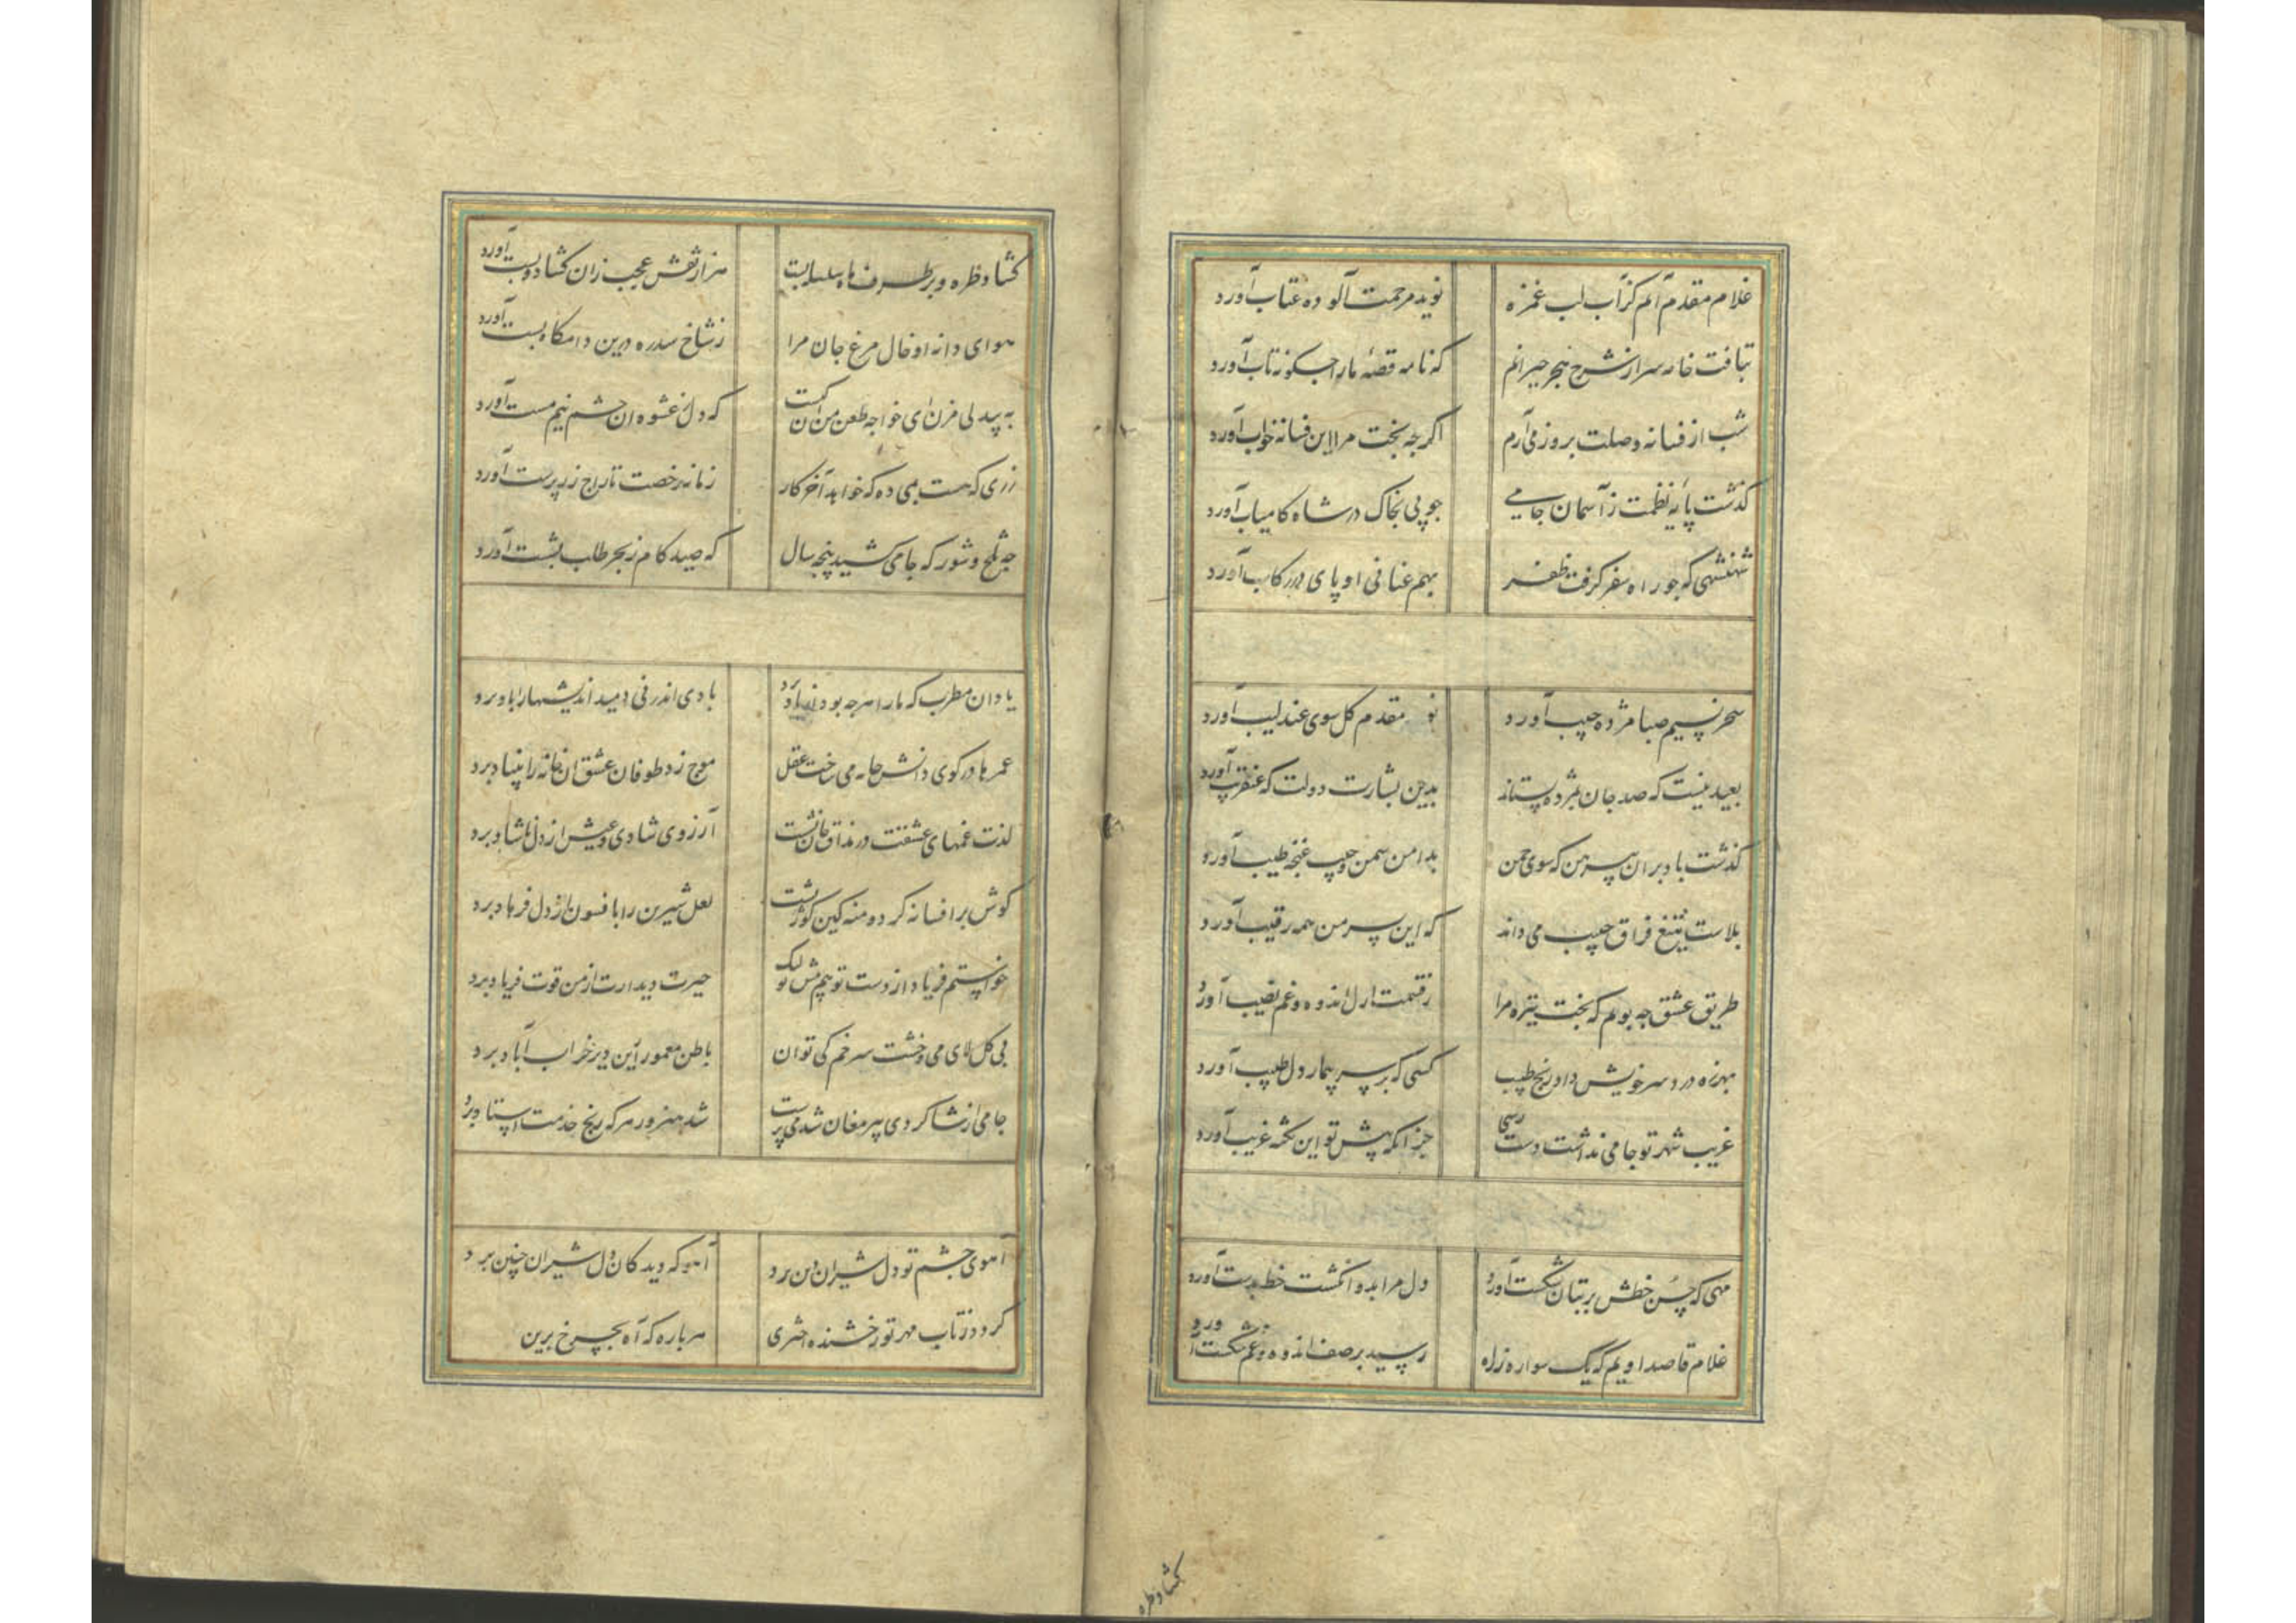 غلام مقدم آنم کز آب لب غمزه نوید مرحمت آلوده عتاب آورد
بتافت خامه سر از شرح هجر حیرانم که نامه قصهٔ ما را چگونه تاب آورد
شب از فسانه وصلت بروز می آرم اگر چه بخت مرا این فسانه خواب آورد
گذشت پایه نظمت ز آسمان جامی چو پی بخاک در شاه کامیاب آورد
شهنشهی که چو راه سفر گرفت ظفر بهم عنانی او پای در رکاب آورد
سحر نسیم صبا مژده حبیب آورد مقدم گل سوی عندلیب آورد
بعید نیست که صد جان بمژده بستاند بدین بشارت دولت که عنقریب آورد
گذشت باد بر آن پیرهن که سوی چمن بدامن سمن و جیب غنچه طیب آورد
بلاست تیغ فراق حبیب می داند که این بسر من همه رقیب آورد
طریق عشق چه پویم که بخت تیره مرا ز قسمت ازل اندوه و غم نصیب آورد
بهرزه درد سر خویش داد و رنج طبیب کسی که بر سر بیمار دل طبیب آورد
غریب شهر تو جامی نداشت دست رسی جز آنکه پیش تو این نکته غریب آورد
مهی که حسن خطش بر بتان شکست آورد دل مرا بدو انگشت خط بدست آورد
غلام قاصد اویم که یک سواره ز راه رسید بر صف اندوه و غم شکست آورد
گشاد طره
گشاد طره و بر طرف ماه سلسله بست هزار نقش عجب زان گشاد و بست آورد
هوای دانه او خال مرغ جان مرا ز شاخ سدره درین دامگاه پست آورد
به بیدلی مزن ای خواجه طعن من که دل ز عشوه آن چشم نیم مست آورد
زری که هست بمی ده که خواهد آخر کار زمانه رخصت تاراج زرپرست آورد
چه تلخ و شور که جامی کشید پنجه سال که صید کام ز بحر طلب بشست آورد
یاد آن مطرب که ما را هر چه بود از یاد برد بادی اندر نی دمید اندیشها را باد برد
عمرها در کوی دانش خانه می ساخت عقل موج زد طوفان عشق آن خانه را بنیاد برد
لذت غمهای عشقت در مذاق جان نشست آرزوی شادی و عیش از دل ناشاد برد
گوش بر افسانه کرد و منه کین گوژ پشت لعل شیرین را بافسون از دل فرهاد برد
خواستم فریاد از دست تو هم پیش تو لیک حیرت دیدارت از من قوت فریاد برد
بی گل لای می و خشت سر خم کی توان باطن معمور ازین دیر خراب آباد برد
جامی از شاگردی پیر مغان شد می پرست شد هنرور هر که رنج خدمت استاد برد
آهوی چشم تو دل شیران دین برد آهو که دید کان دل شیران چنین برد
گردد ز تاب مهر تو رخشنده اختری هر باره که آه بچرخ برین